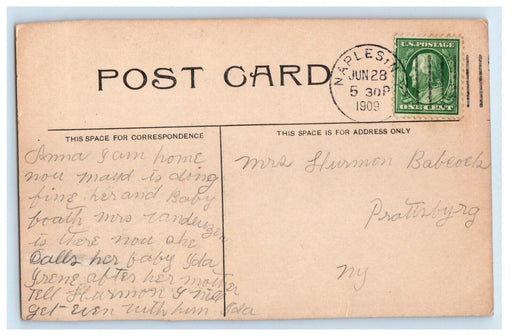 POST CARD
NAPLES N.Y.
JUN 28
5 30P
1909
U.S. POSTAGE
ONE CENT
THIS SPACE FOR CORRESPONDENCE
THIS SPACE IS FOR ADDRESS ONLY
Anna I am home
now maud is doing
fine her and Baby
boath mrs
is there now she
Calls her baby Ida
Irene after her mother
tell Hurmon I will
get even with him Ida
Mrs Hurmon Babcock
Prattsburg
Ny